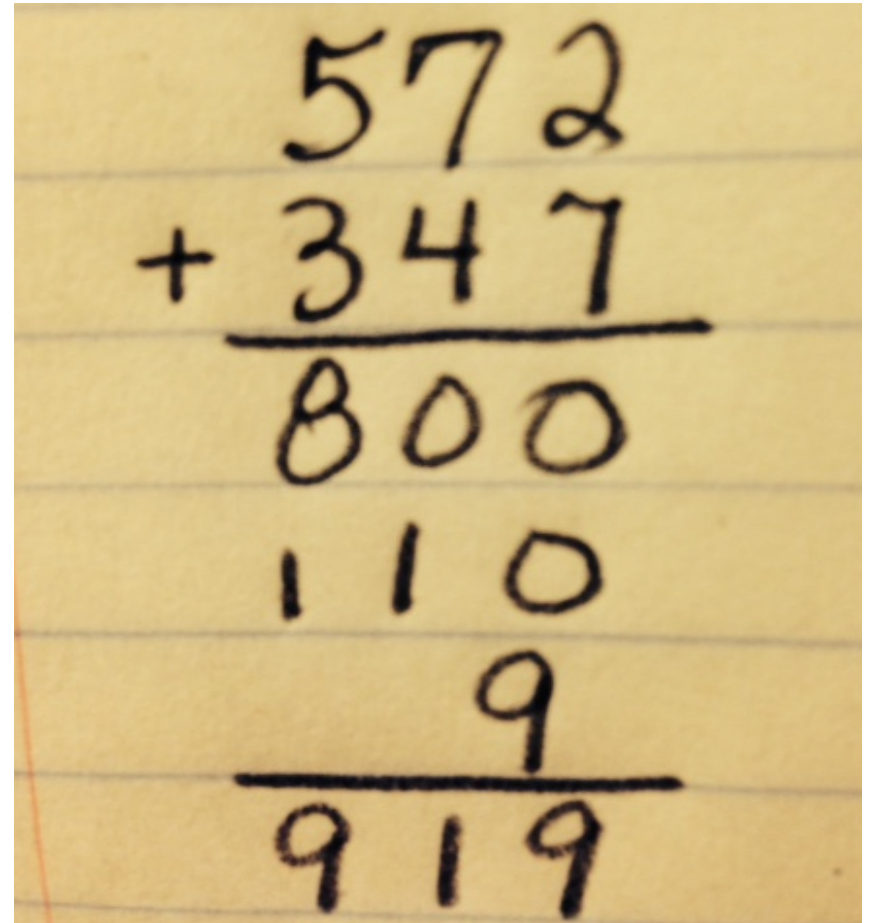 572
+ 347
800
110
9
919